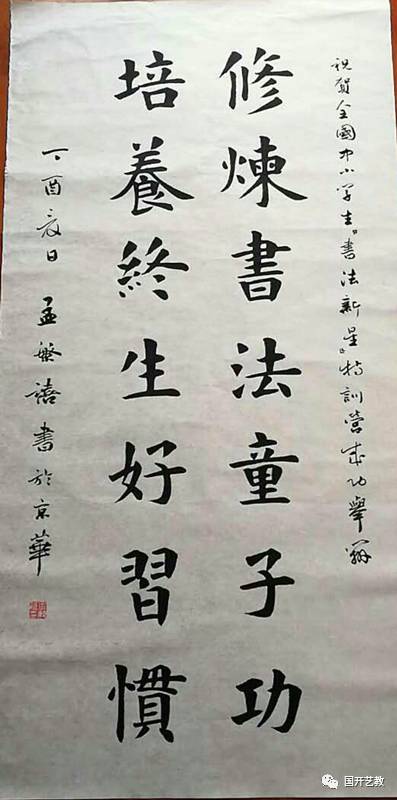 祝贺全國中小学生“書法新星”特训营成功舉办
修煉書法童子功
培養終生好習慣
丁酉夏日 孟繁禧書於京華
国开艺教